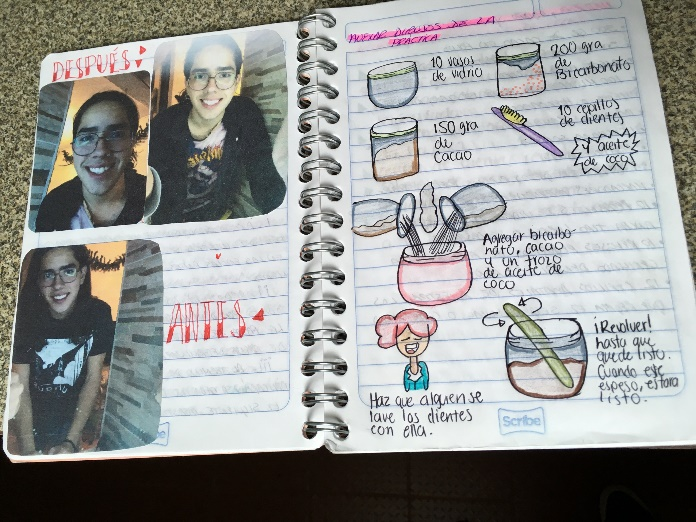 DESPUÉS:
ANTES
DE LA
PRACTICA
10 vasos
de vidrio
200 gra
de
Bicarbonato
150 gra
de
Cacao
10 cepillos
de dientes
y aceite
de coco
Agregar bicarbo-
nato, cacao
y un trozo
de aceite de
coco
¡Revolver!
hasta que
quede listo.
Cuando esté
espeso, estara
listo.
Haz que alguien se
lave los dientes
con ella.
Scribe